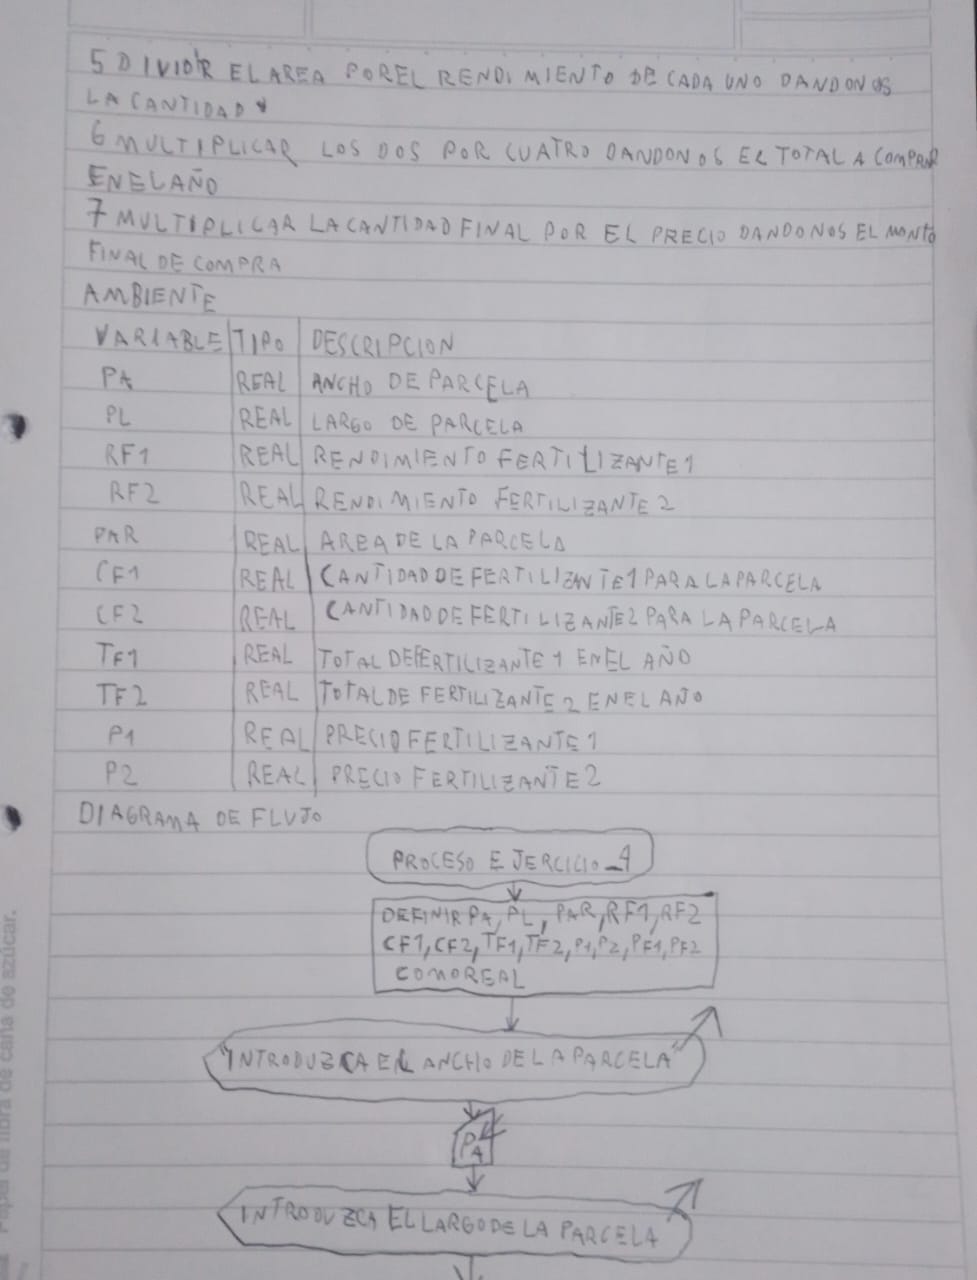 5 DIVIDIR EL AREA POR EL RENDIMIENTO DE CADA UNO DANDONOS
LA CANTIDAD
6 MULTIPLICAR LOS DOS POR CUATRO DANDONOS EL TOTAL A COMPRAR
EN EL AÑO
7 MULTIPLICAR LA CANTIDAD FINAL POR EL PRECIO DANDONOS EL MONTO
FINAL DE COMPRA
AMBIENTE
VARIABLE TIPO DESCRIPCION
PA REAL ANCHO DE PARCELA
PL REAL LARGO DE PARCELA
RF1 REAL RENDIMIENTO FERTILIZANTE 1
RF2 REAL RENDIMIENTO FERTILIZANTE 2
PAR REAL AREA DE LA PARCELA
CF1 REAL CANTIDAD DE FERTILIZANTE 1 PARA LA PARCELA
CF2 REAL CANTIDAD DE FERTILIZANTE 2 PARA LA PARCELA
TF1 REAL TOTAL DE FERTILIZANTE 1 EN EL AÑO
TF2 REAL TOTAL DE FERTILIZANTE 2 EN EL AÑO
P1 REAL PRECIO FERTILIZANTE 1
P2 REAL PRECIO FERTILIZANTE 2
DIAGRAMA DE FLUJO
PROCESO EJERCICIO_4
DEFINIR PA, PL, PAR, RF1, RF2
CF1, CF2, TF1, TF2, P1, P2, PF1, PF2
COMO REAL
"INTRODUZCA EL ANCHO DE LA PARCELA"
PA
INTRODUZCA EL LARGO DE LA PARCELA
Papel de fibra de caña de azúcar.